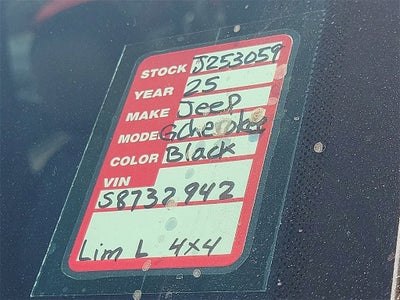 STOCK J253059
YEAR 25
MAKE Jeep
MODEL GCherokee
COLOR Black
VIN
S8732942
Lim L 4x4